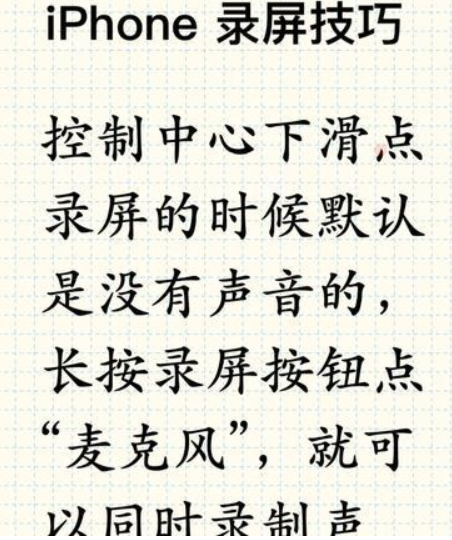 iPhone 录屏技巧
控制中心下滑,点
录屏的时候默认
是没有声音的，
长按录屏按钮,点
“麦克风”，就可
以同时录制声